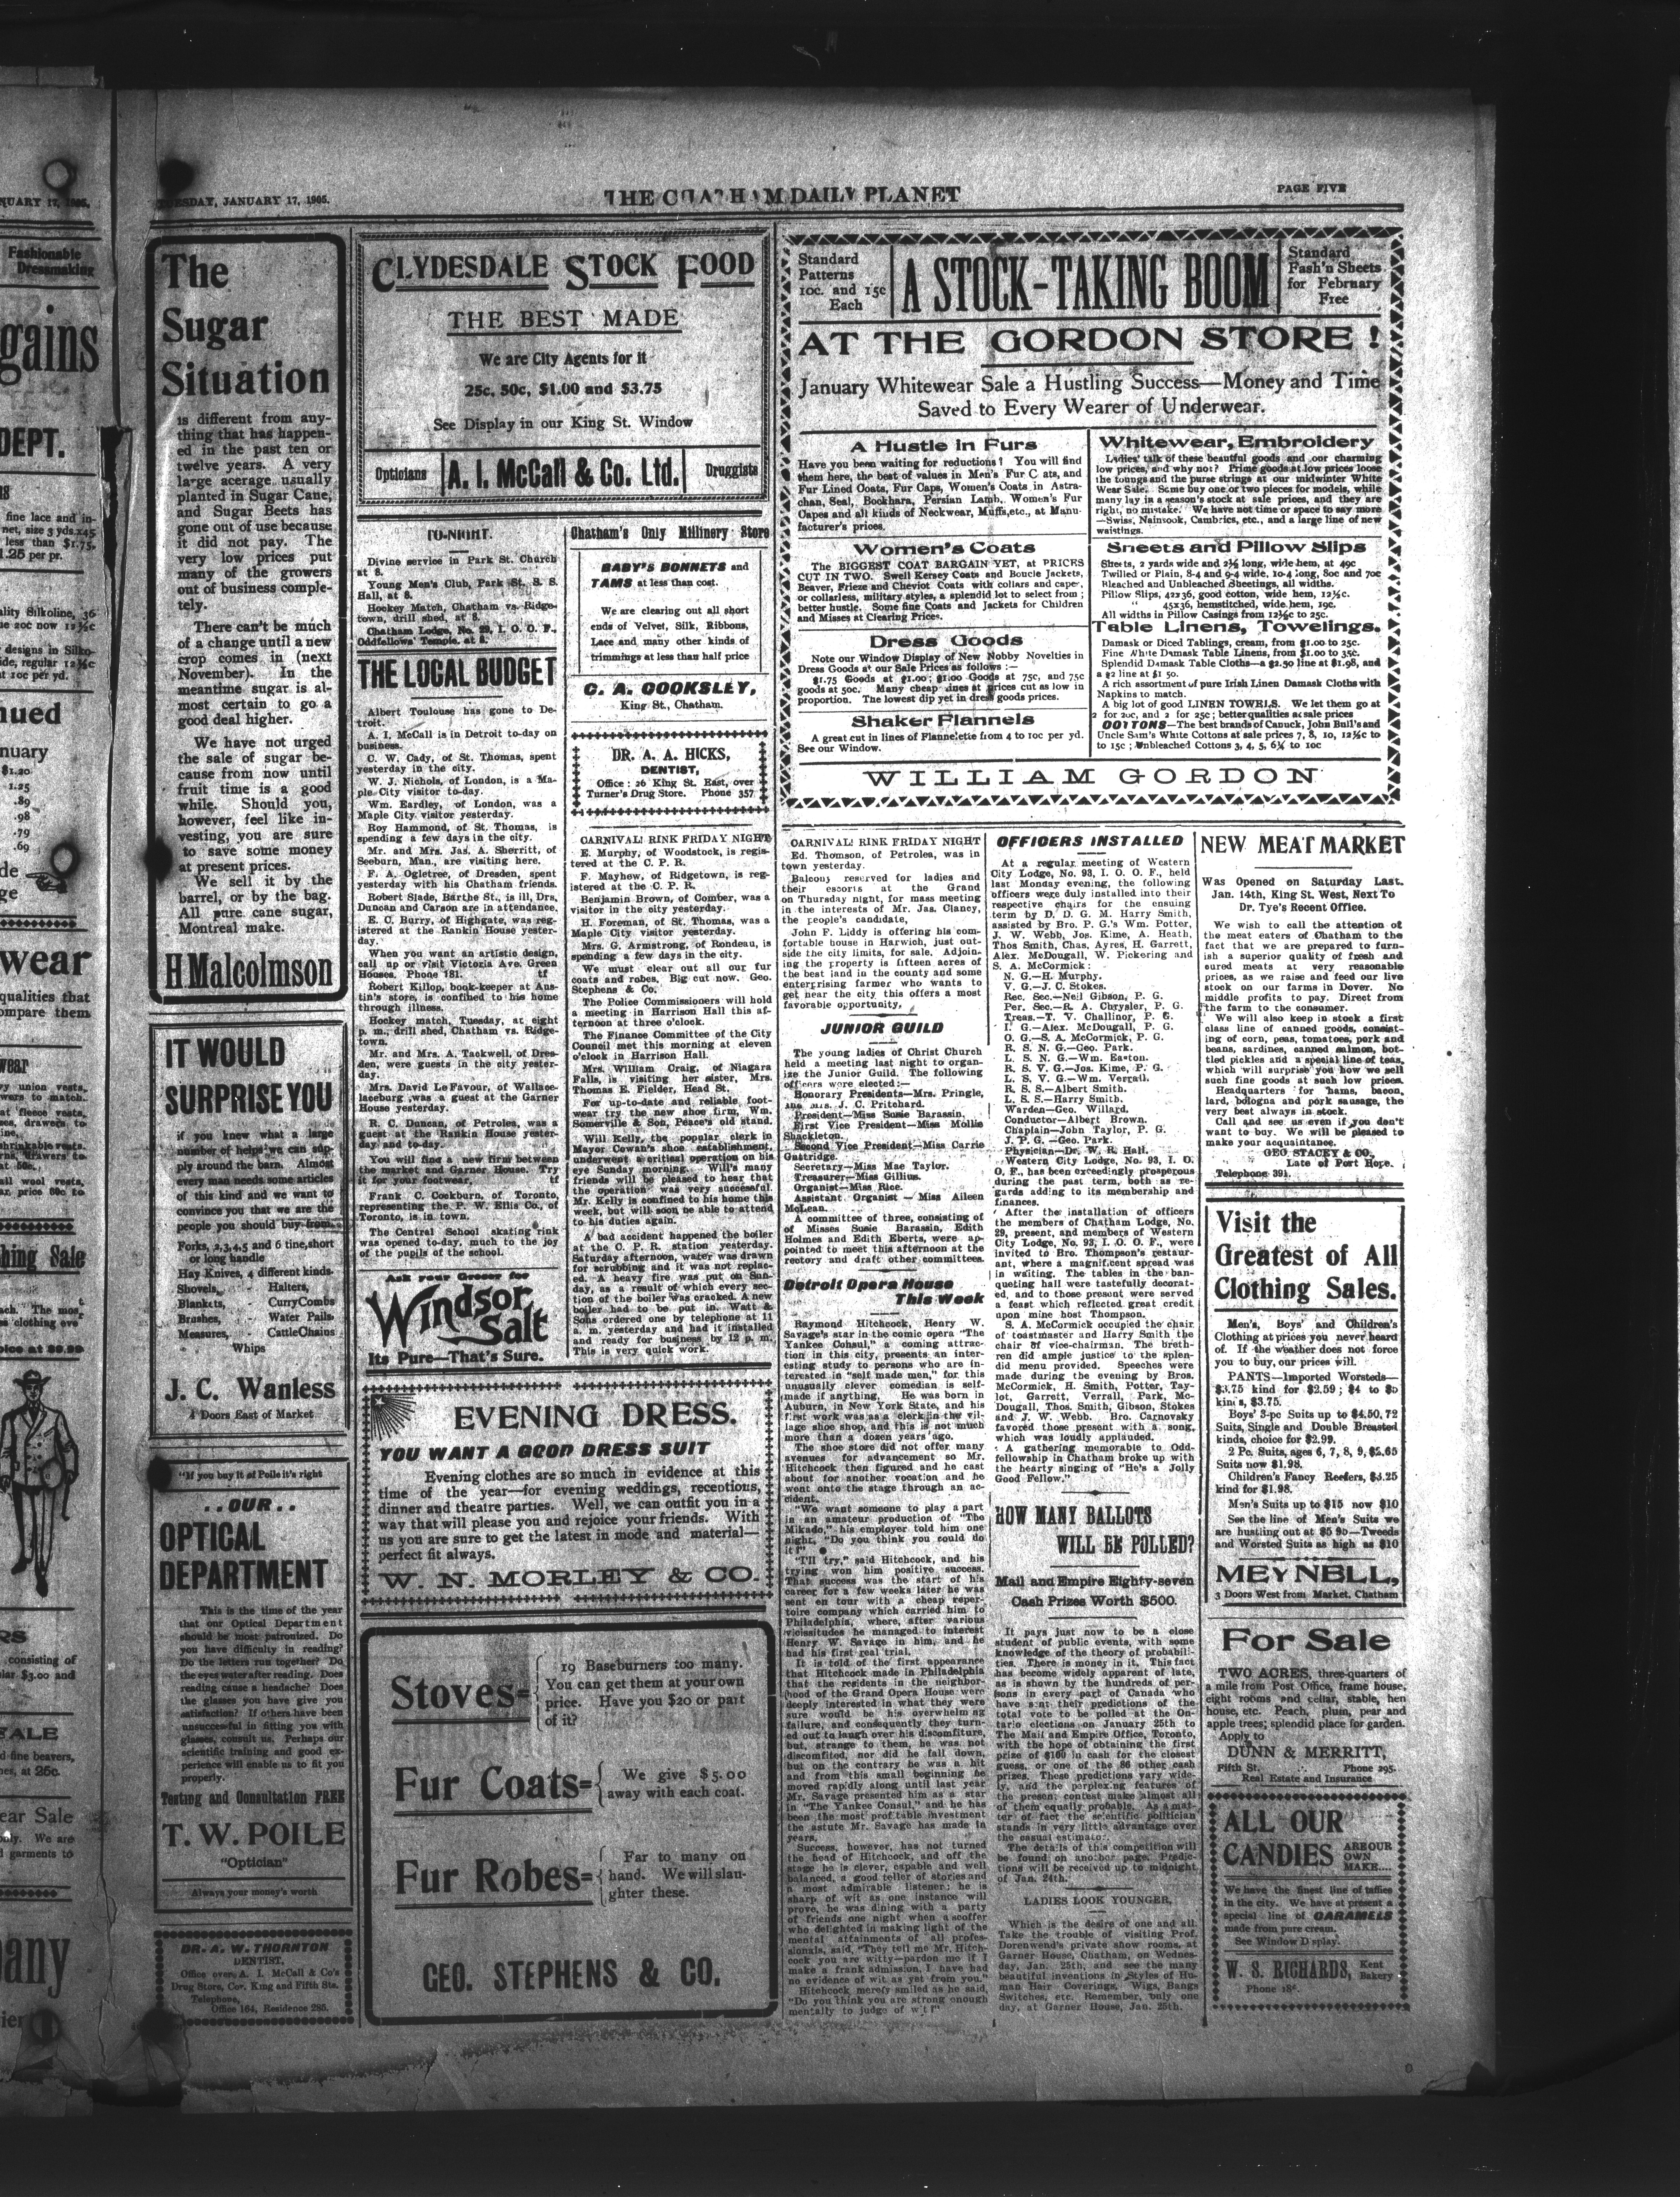 TUESDAY, JANUARY 17, 1905.
THE CHATHAM DAILY PLANET
PAGE FIVE
The
Sugar
Situation
is different from any-
thing that has happen-
ed in the past ten or
twelve years. A very
large acerage usually
planted in Sugar Cane,
and Sugar Beets has
gone out of use because
it did not pay. The
very low prices put
many of the growers
out of business comple-
tely.
There can't be much
of a change until a new
crop comes in (next
November). In the
meantime sugar is al-
most certain to go a
good deal higher.
We have not urged
the sale of sugar be-
cause from now until
fruit time is a good
while. Should you,
however, feel like in-
vesting, you are sure
to save some money
at present prices.
We sell it by the
barrel, or by the bag.
All pure cane sugar,
Montreal make.
H Malcolmson
IT WOULD
SURPRISE YOU
if you knew what a large
number of helps we can sup-
ply around the barn. Almost
every man needs some articles
of this kind and we want to
convince you that we are the
people you should buy from.
Forks, 2,3,4,5 and 6 tine, short
or long handle
Hay Knives, 4 different kinds.
Shovels, - Halters,
Blankets, - Curry Combs
Brushes, - Water Pails,
Measures, - Cattle Chains
Whips
J. C. Wanless
4 Doors East of Market
"If you buy it of Poile it's right
..OUR..
OPTICAL
DEPARTMENT
This is the time of the year
that our Optical Department
should be most patronized. Do
you have difficulty in reading?
Do the letters run together? Do
the eyes water after reading. Does
reading cause a headache? Does
the glasses you have give you
satisfaction? If others have been
unsuccessful in fitting you with
glasses, consult us. Perhaps our
scientific training and good ex-
perience will enable us to fit you
properly.
Testing and Consultation FREE
T. W. POILE
"Optician"
Always your money's worth
DR. A. W. THORNTON
DENTIST,
Office over A. I. McCall & Co's
Drug Store, Cor. King and Fifth Sts.
Telephone,
Office 164, Residence 285.
CLYDESDALE STOCK FOOD
THE BEST MADE
We are City Agents for it
25c, 50c, $1.00 and $3.75
See Display in our King St. Window
Opticians
A. I. McCall & Co. Ltd.
Druggists
TO-NIGHT.
Divine service in Park St. Church
at 8.
Young Men's Club, Park St. S. S.
Hall, at 8.
Hockey Match, Chatham vs. Ridge-
town, drill shed, at 8.
Chatham Lodge, No. 29, I. O. O. F.,
Oddfellows' Temple, at 8.
THE LOCAL BUDGET
Albert Toulouse has gone to De-
troit.
A. I. McCall is in Detroit to-day on
business.
C. W. Cady, of St. Thomas, spent
yesterday in the city.
W. J. Nichols, of London, is a Ma-
ple City visitor to-day.
Wm. Eardley, of London, was a
Maple City visitor yesterday.
Roy Hammond, of St. Thomas, is
spending a few days in the city.
Mr. and Mrs. Jas. A. Sherritt, of
Seeburn, Man., are visiting here.
F. A. Ogletree, of Dresden, spent
yesterday with his Chatham friends.
Robert Slade, Barthe St., is ill, Drs.
Duncan and Carson are in attendance.
E. C. Burry, of Highgate, was reg-
istered at the Rankin House yester-
day.
When you want an artistic design,
call up or visit Victoria Ave. Green
Houses. Phone 181. tf
Robert Killop, book-keeper at Aus-
tin's store, is confined to his home
through illness.
Hockey match, Tuesday, at eight
p. m., drill shed, Chatham vs. Ridge-
town.
Mr. and Mrs. A. Tackwell, of Dres-
den, were guests in the city yester-
day.
Mrs. David LeFavour, of Wallace-
laceburg was a guest at the Garner
House yesterday.
R. C. Duncan, of Petrolea, was a
guest at the Rankin House yester-
day and to-day.
You will find a new firm between
the market and Garner House. Try
it for your footwear. tf
Frank C. Cockburn, of Toronto,
representing the P. W. Ellis Co., of
Toronto, is in town.
The Central School skating rink
was opened to-day, much to the joy
of the pupils of the school.
Ask your Grocer for
Windsor
Salt
Its Pure—That's Sure.
Chatham's Only Millinery Store
BABY'S BONNETS and
TAMS at less than cost.
We are clearing out all short
ends of Velvet, Silk, Ribbons,
Lace and many other kinds of
trimmings at less than half price
C. A. COOKSLEY,
King St., Chatham.
DR. A. A. HICKS,
DENTIST,
Office: 26 King St. East, over
Turner's Drug Store. Phone 357
CARNIVAL! RINK FRIDAY NIGHT
E. Murphy, of Woodstock, is regis-
tered at the C. P. R.
F. Mayhew, of Ridgetown, is reg-
istered at the C. P. R.
Benjamin Brown, of Comber, was a
visitor in the city yesterday.
H. Foreman, of St. Thomas, was a
Maple City visitor yesterday.
Mrs. G. Armstrong, of Rondeau, is
spending a few days in the city.
We must clear out all our fur
coats and robes. Big cut now. Geo.
Stephens & Co.
The Police Commissioners will hold
a meeting in Harrison Hall this af-
ternoon at three o'clock.
The Finance Committee of the City
Council met this morning at eleven
o'clock in Harrison Hall.
Mrs. William Craig, of Niagara
Falls, is visiting her sister, Mrs.
Thomas E. Fielder, Head St.
For up-to-date and reliable foot-
wear try the new shoe firm, Wm.
Somerville & Son, Peace's old stand.
Will Kelly, the popular clerk in
Mayor Cowan's shoe establishment,
underwent a critical operation on his
eye Sunday morning. Will's many
friends will be pleased to hear that
the operation was very successful.
Mr. Kelly is confined to his home this
week, but will soon be able to attend
to his duties again.
A bad accident happened the boiler
at the C. P. R. station yesterday.
Saturday afternoon, water was drawn
for scrubbing and it was not replac-
ed. A heavy fire was put on Sun-
day, as a result of which every sec-
tion of the boiler was cracked. A new
boiler had to be put in. Watt &
Sons ordered one by telephone at 11
a. m. yesterday and had it installed
and ready for business by 12 p. m.
This is very quick work.
EVENING DRESS.
YOU WANT A GOOD DRESS SUIT
Evening clothes are so much in evidence at this
time of the year—for evening weddings, receptions,
dinner and theatre parties. Well, we can outfit you in a
way that will please you and rejoice your friends. With
us you are sure to get the latest in mode and material—
perfect fit always.
W. N. MORLEY & CO.
Stoves=
19 Baseburners too many.
You can get them at your own
price. Have you $20 or part
of it?
Fur Coats=
We give $5.00
away with each coat.
Fur Robes=
Far to many on
hand. We will slau-
ghter these.
GEO. STEPHENS & CO.
Standard
Patterns
10c. and 15c
Each
A STOCK-TAKING BOOM
Standard
Fash'n Sheets
for February
Free
AT THE GORDON STORE!
January Whitewear Sale a Hustling Success—Money and Time
Saved to Every Wearer of Underwear.
A Hustle in Furs
Have you been waiting for reductions? You will find
them here, the best of values in Men's Fur C ats, and
Fur Lined Coats, Fur Caps, Women's Coats in Astra-
chan, Seal, Bookhara, Persian Lamb, Women's Fur
Capes and all kinds of Neckwear, Muffs, etc., at Manu-
facturer's prices.
Women's Coats
The BIGGEST COAT BARGAIN YET, at PRICES
CUT IN TWO. Swell Kersey Coats and Boucle Jackets,
Beaver, Frieze and Cheviot Coats with collars and caper,
or collarless, military styles, a splendid lot to select from;
better hustle. Some fine Coats and Jackets for Children
and Misses at Clearing Prices.
Dress Goods
Note our Window Display of New Nobby Novelties in
Dress Goods at our Sale Prices as follows:—
$1.75 Goods at $1.00; $1.00 Goods at 75c, and 75c
goods at 50c. Many cheap lines at prices cut as low in
proportion. The lowest dip yet in dress goods prices.
Shaker Flannels
A great cut in lines of Flannelette from 4 to 10c per yd.
See our Window.
Whitewear, Embroidery
Ladies' talk of these beautful goods and our charming
low prices, and why not? Prime goods at low prices loose
the toungs and the purse strings at our midwinter White
Wear Sale. Some buy one or two pieces for models, while
many lay in a season's stock at sale prices, and they are
right, no mistake. We have not time or space to say more
—Swiss, Nainsook, Cambrics, etc., and a large line of new
waistings.
Sheets and Pillow Slips
Sheets, 2 yards wide and 2½ long, wide hem, at 49c
Twilled or Plain, 8-4 and 9-4 wide, 10-4 long, 80c and 70c
Bleached and Unbleached Sheetings, all widths.
Pillow Slips, 42x36, good cotton, wide hem, 12½c.
" 45x36, hemstitched, wide hem, 19c.
All widths in Pillow Casings from 12½c to 25c.
Table Linens, Towelings.
Damask or Diced Tablings, cream, from $1.00 to 25c.
Fine White Damask Table Linens, from $1.00 to 35c.
Splendid Damask Table Cloths—a $2.50 line at $1.98, and
a $2 line at $1 50.
A rich assortment of pure Irish Linen Damask Cloths with
Napkins to match.
A big lot of good LINEN TOWELS. We let them go at
2 for 20c, and 2 for 25c; better qualities at sale prices
COTTONS—The best brands of Canuck, John Bull's and
Uncle Sam's White Cottons at sale prices 7, 8, 10, 12½c to
to 15c; Unbleached Cottons 3, 4, 5, 6¼ to 10c
WILLIAM GORDON
CARNIVAL! RINK FRIDAY NIGHT
Ed. Thomson, of Petrolea, was in
town yesterday.
Balcony reserved for ladies and
their escorts at the Grand
on Thursday night, for mass meeting
in the interests of Mr. Jas. Clancy,
the people's candidate,
John F. Liddy is offering his com-
fortable house in Harwich, just out-
side the city limits, for sale. Adjoin-
ing the property is fifteen acres of
the best land in the county and some
enterprising farmer who wants to
get near the city this offers a most
favorable opportunity.
JUNIOR GUILD
The young ladies of Christ Church
held a meeting last night to organ-
ize the Junior Guild. The following
officers were elected:—
Honorary Presidents—Mrs. Pringle,
and Mrs. J. C. Pritchard.
President—Miss Susie Barassin.
First Vice President—Miss Mollie
Shackleton.
Second Vice President—Miss Carrie
Guttridge.
Secretary—Miss Mae Taylor.
Treasurer—Miss Gillius.
Organist—Miss Rice.
Assistant Organist — Miss Aileen
McLean.
A committee of three, consisting of
of Misses Susie Barassin, Edith
Holmes and Edith Eberts, were ap-
pointed to meet this afternoon at the
rectory and draft other committees.
Detroit Opera House
This Week
Raymond Hitchcock, Henry W.
Savage's star in the comic opera "The
Yankee Consul," a coming attrac-
tion in this city, presents an inter-
esting study to persons who are in-
terested in "self made men," for this
unusually clever comedian is self-
made if anything. He was born in
Auburn, in New York State, and his
first work was as a clerk in the vil-
lage shoe shop, and this is not much
more than a dozen years ago.
The shoe store did not offer many
avenues for advancement so Mr.
Hitchcock then figured and he cast
about for another vocation and he
went onto the stage through an ac-
cident.
"We want someone to play a part
in an amateur production of "The
Mikado," his employer told him one
night. "Do you think you could do
it?"
"I'll try," said Hitchcock, and his
trying won him positive success.
That success was the start of his
career for a few weeks later he was
sent en tour with a cheap reper-
toire company which carried him to
Philadelphia, where, after various
vicissitudes he managed to interest
Henry W. Savage in him, and he
had his first real trial.
It is told of the first appearance
that Hitchcock made in Philadelphia
that the residents in the neighbor-
hood of the Grand Opera House were
deeply interested in what they were
sure would be his overwhelming
failure, and consequently they turn-
ed out to laugh over his discomfiture,
but, strange to them, he was not
discomfited, nor did he fall down,
but on the contrary he was a hit
and from this small beginning he
moved rapidly along until last year
Mr. Savage presented him as a star
in "The Yankee Consul," and he has
been the most profitable investment
the astute Mr. Savage has made in
years.
Success, however, has not turned
the head of Hitchcock, and off the
stage he is clever, capable and well
balanced, a good teller of stories and
a most admirable listener; he is
sharp of wit as one instance will
prove, he was dining with a party
of friends one night when a scoffer
who delighted in making light of the
mental attainments of all profes-
sionals, said, "They tell me Mr. Hitch-
cock you are witty—pardon me if I
make a frank admission, I have had
no evidence of wit as yet from you."
Hitchcock merely smiled as he said,
"Do you think you are strong enough
mentally to judge of wit?"
OFFICERS INSTALLED
At a regular meeting of Western
City Lodge, No. 93, I. O. O. F., held
last Monday evening, the following
officers were duly installed into their
respective chairs for the ensuing
term by D. D. G. M. Harry Smith,
assisted by Bro. P. G.'s Wm. Potter,
J. W. Webb, Jos. Kime, A. Heath,
Thos Smith, Chas. Ayres, H. Garrett,
Alex. McDougall, W. Pickering and
S. A. McCormick:
N. G.—H. Murphy.
V. G.—J. C. Stokes.
Rec. Sec.—Neil Gibson, P. G.
Per. Sec.—R. A. Chrysler, P. G.
Treas.—T. V. Challinor, P. G.
I. G.—Alex. McDougall, P. G.
O. G.—S. A. McCormick, P. G.
R. S. N. G.—Geo. Park.
L. S. N. G.—Wm. Easton.
R. S. V. G.—Jos. Kime, P. G.
L. S. V. G.—Wm. Verrall.
R. S. S.—Albert Smith.
L. S. S.—Harry Smith.
Warden—Geo. Willard.
Conductor—Albert Brown.
Chaplain—John Taylor, P. G.
J. P. G.—Geo. Park.
Physician—Dr. W. R. Hall.
Western City Lodge, No. 93, I. O.
O. F., has been exceedingly prosperous
during the past term, both as re-
gards adding to its membership and
finances.
After the installation of officers
the members of Chatham Lodge, No.
29, present, and members of Western
City Lodge, No. 93, I. O. O. F., were
invited to Bro. Thompson's restaur-
ant, where a magnificent spread was
in waiting. The tables in the ban-
queting hall were tastefully decorat-
ed, and to those present were served
a feast which reflected great credit
upon mine host Thompson.
S. A. McCormick occupied the chair
of toastmaster and Harry Smith the
chair of vice-chairman. The breth-
ren did ample justice to the splen-
did menu provided. Speeches were
made during the evening by Bros.
McCormick, H. Smith, Potter, Tay-
lor, Garrett, Verrall, Park, Mc-
Dougall, Thos. Smith, Gibson, Stokes
and J. W. Webb. Bro. Carnovsky
favored those present with a song,
which was loudly applauded.
A gathering memorable to Odd-
fellowship in Chatham broke up with
the hearty singing of "He's a Jolly
Good Fellow."
HOW MANY BALLOTS
WILL BE POLLED?
Mail and Empire Eighty-seven
Cash Prizes Worth $500.
It pays just now to be a close
student of public events, with some
knowledge of the theory of probabili-
ties. There is money in it. This fact
has become widely apparent of late,
as is shown by the hundreds of per-
sons in every part of Canada who
have sent their predictions of the
total vote to be polled at the On-
tario elections on January 25th to
The Mail and Empire Office, Toronto,
with the hope of obtaining the first
prize of $100 in cash for the closest
guess, or one of the 86 other cash
prizes. These predictions vary wide-
ly, and the perplexing features of
the present contest make almost all
of them equally probable. As a mat-
ter of fact the scientific politician
stands in very little advantage over
the casual estimator.
The details of this competition will
be found on another page. Predic-
tions will be received up to midnight
of Jan. 24th.
LADIES LOOK YOUNGER.
Which is the desire of one and all.
Take the trouble of visiting Prof.
Dorenwend's private show rooms, at
Garner House, Chatham, on Wednes-
day, Jan. 25th, and see the many
beautiful inventions in Styles of Hu-
man Hair Coverings, Wigs, Bangs
Switches, etc. Remember, only one
day, at Garner House, Jan. 25th.
NEW MEAT MARKET
Was Opened on Saturday Last.
Jan. 14th, King St. West, Next To
Dr. Tye's Recent Office.
We wish to call the attention of
the meat eaters of Chatham to the
fact that we are prepared to furn-
ish a superior quality of fresh and
cured meats at very reasonable
prices, as we raise and feed our live
stock on our farms in Dover. No
middle profits to pay. Direct from
the farm to the consumer.
We will also keep in stock a first
class line of canned goods, consist-
ing of corn, peas, tomatoes, pork and
beans, sardines, canned salmon, bot-
tled pickles and a special line of teas,
which will surprise you how we sell
such fine goods at such low prices.
Headquarters for hams, bacon,
lard, bologna and pork sausage, the
very best always in stock.
Call and see us even if you don't
want to buy. We will be pleased to
make your acquaintance.
GEO. STACEY & CO.,
Late of Port Hope.
Telephone 391.
Visit the
Greatest of All
Clothing Sales.
Men's, Boys' and Children's
Clothing at prices you never heard
of. If the weather does not force
you to buy, our prices will.
PANTS—Imported Worsteds—
$3.75 kind for $2.59; $4 to $5
kinds, $3.75.
Boys' 3-pc Suits up to $4.50, 72
Suits, Single and Double Breasted
kinds, choice for $2.99.
2 Pc. Suits, ages 6, 7, 8, 9, $2.65
Suits now $1.98.
Children's Fancy Reefers, $3.25
kind for $1.98.
Men's Suits up to $15 now $10
See the line of Men's Suits we
are hustling out at $5 90—Tweeds
and Worsted Suits as high as $10
MEYNELL,
3 Doors West from Market, Chatham
For Sale
TWO ACRES, three-quarters of
a mile from Post Office, frame house,
eight rooms and cellar, stable, hen
house, etc. Peach, plum, pear and
apple trees; splendid place for garden.
Apply to
DUNN & MERRITT,
Fifth St. Phone 295.
Real Estate and Insurance
ALL OUR
CANDIES
ARE OUR
OWN
MAKE....
We have the finest line of taffies
in the city. We have at present a
special line of CARAMELS
made from pure cream.
See Window Display.
W. S. RICHARDS,
Kent
Bakery
Phone